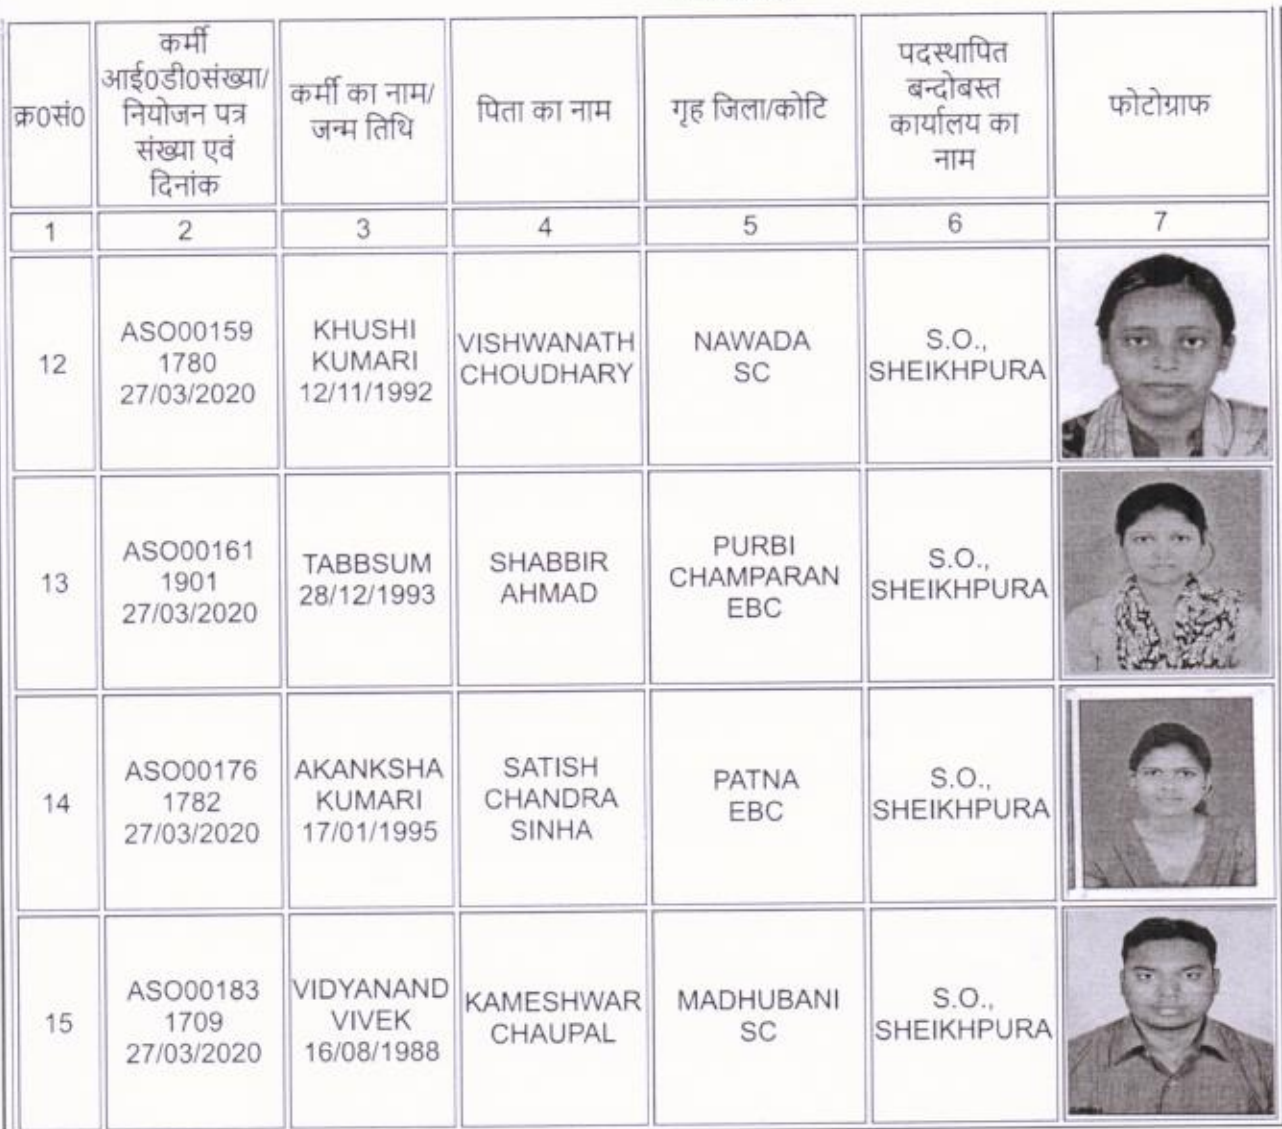 क्र0सं0
कर्मी
आई0डी0संख्या/
नियोजन पत्र
संख्या एवं
दिनांक
कर्मी का नाम/
जन्म तिथि
पिता का नाम
गृह जिला/कोटि
पदस्थापित
बन्दोबस्त
कार्यालय का
नाम
फोटोग्राफ
1
2
3
4
5
6
7
12
ASO00159
1780
27/03/2020
KHUSHI
KUMARI
12/11/1992
VISHWANATH
CHOUDHARY
NAWADA
SC
S.O.,
SHEIKHPURA
13
ASO00161
1901
27/03/2020
TABBSUM
28/12/1993
SHABBIR
AHMAD
PURBI
CHAMPARAN
EBC
S.O.,
SHEIKHPURA
14
ASO00176
1782
27/03/2020
AKANKSHA
KUMARI
17/01/1995
SATISH
CHANDRA
SINHA
PATNA
EBC
S.O.,
SHEIKHPURA
15
ASO00183
1709
27/03/2020
VIDYANAND
VIVEK
16/08/1988
KAMESHWAR
CHAUPAL
MADHUBANI
SC
S.O.,
SHEIKHPURA